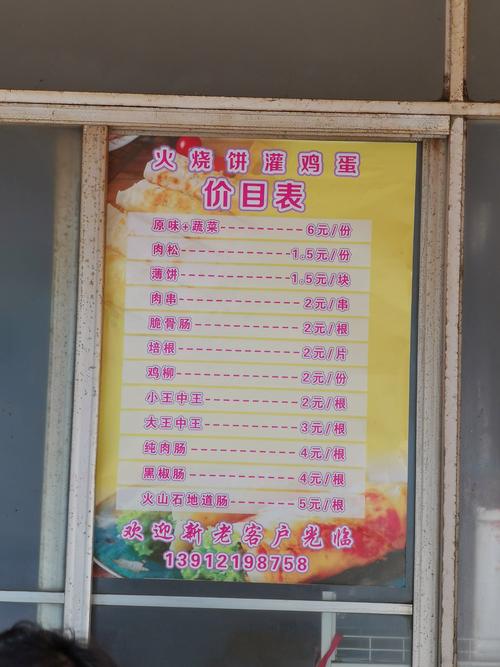 火烧饼灌鸡蛋
价目表
原味+蔬菜----------6元/份
肉松--------------1.5元/份
薄饼--------------1.5元/块
肉串--------------2元/串
脆骨肠------------2元/根
培根--------------2元/片
鸡柳--------------2元/份
小王中王----------2元/根
大王中王----------3元/根
纯肉肠------------4元/根
黑椒肠------------4元/根
火山石地道肠-------5元/根
欢迎新老客户光临
13912198758